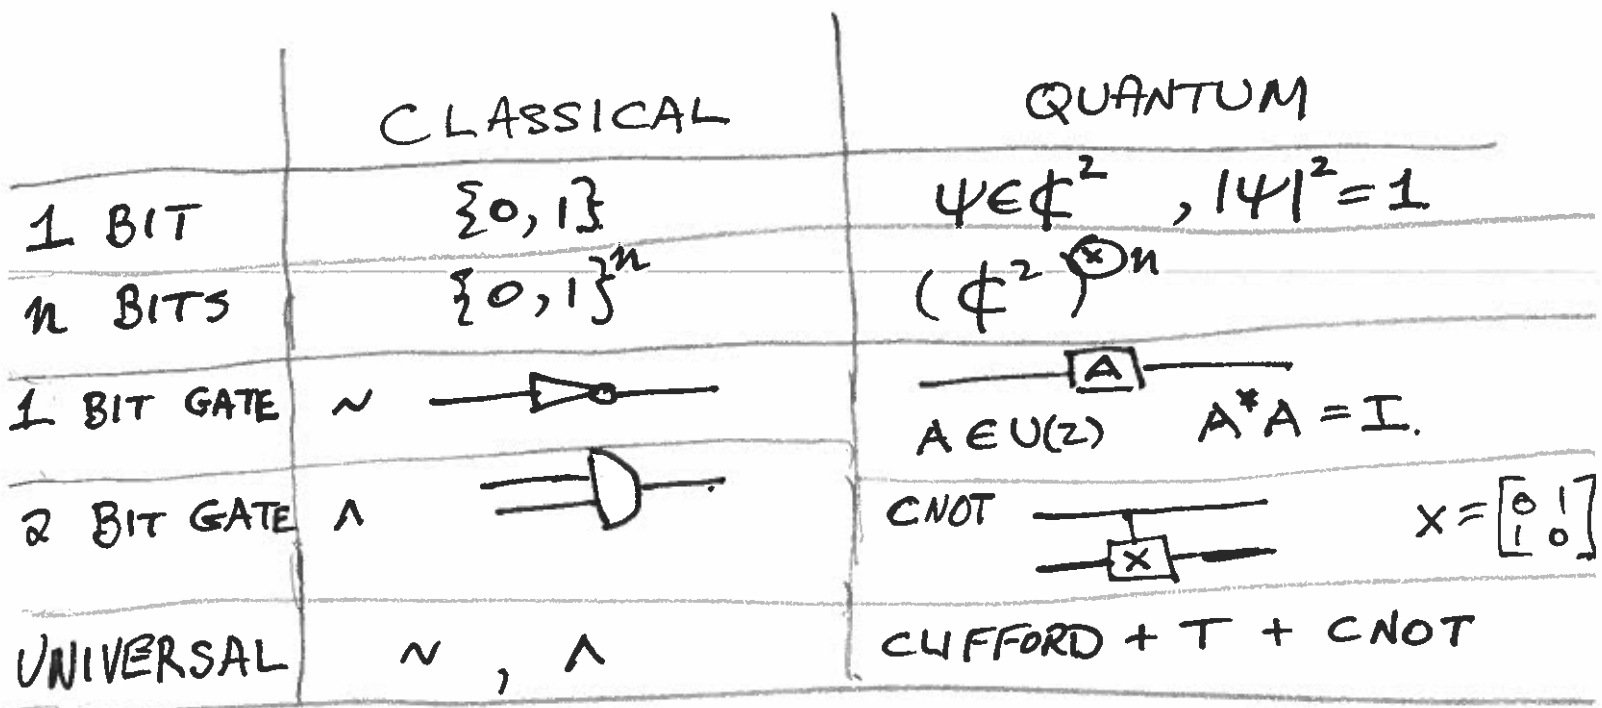 CLASSICAL QUANTUM
1 BIT {0,1} ψ∈ℂ² , |ψ|²=1
n BITS {0,1}ⁿ (ℂ²)^⊗n
1 BIT GATE ~ A
A ∈ U(2) A*A = I.
2 BIT GATE ∧ CNOT X X = [0 1
1 0]
UNIVERSAL ~ , ∧ CLIFFORD + T + CNOT